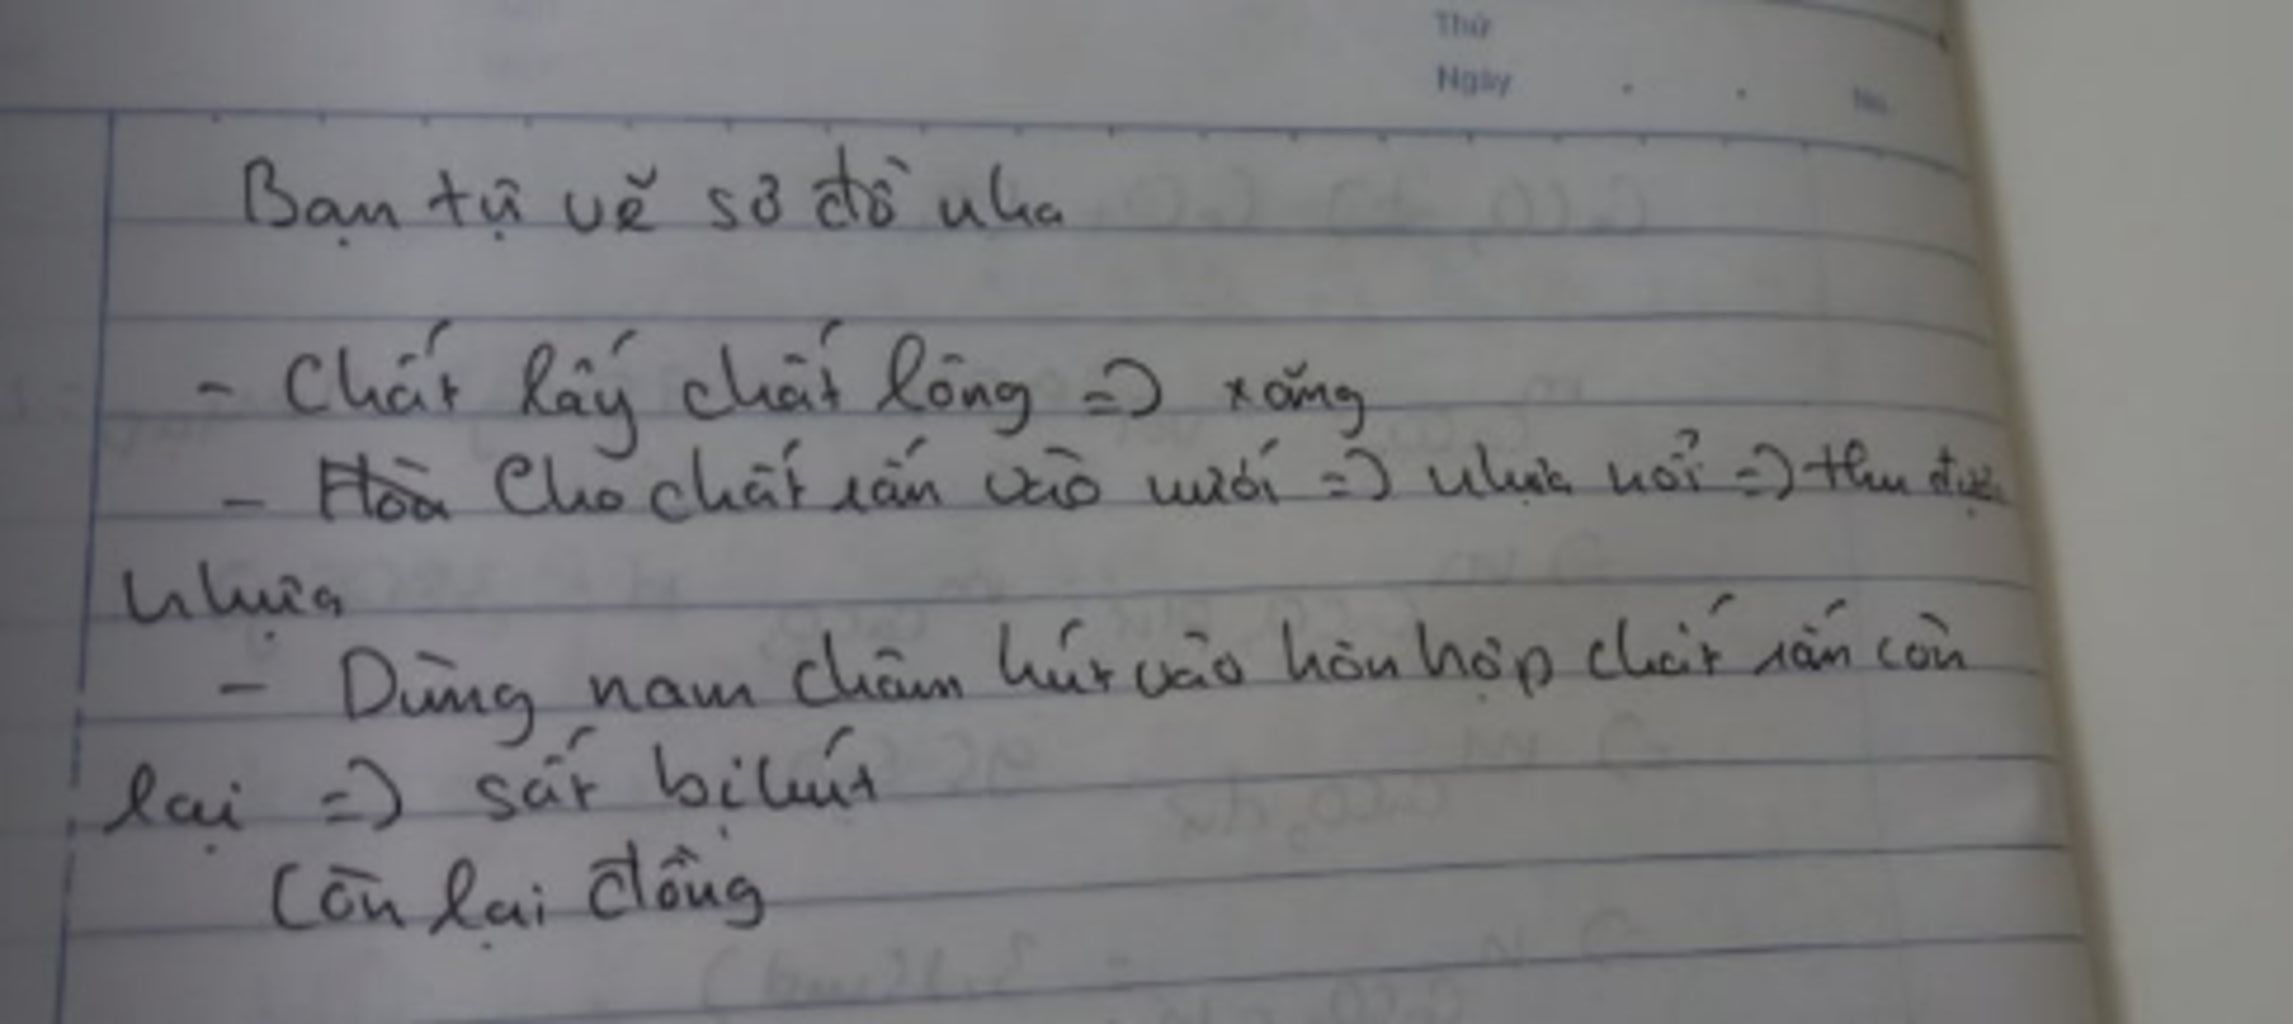 Thứ
Ngày . . No.
Bạn tự vẽ sơ đồ nha
- Chắt lấy chất lỏng => xăng
- Cho chất rắn vào nước => nhựa nổi => thu được
nhựa
- Dùng nam châm hút vào hỗn hợp chất rắn còn
lại => sắt bị hút
Còn lại đồng